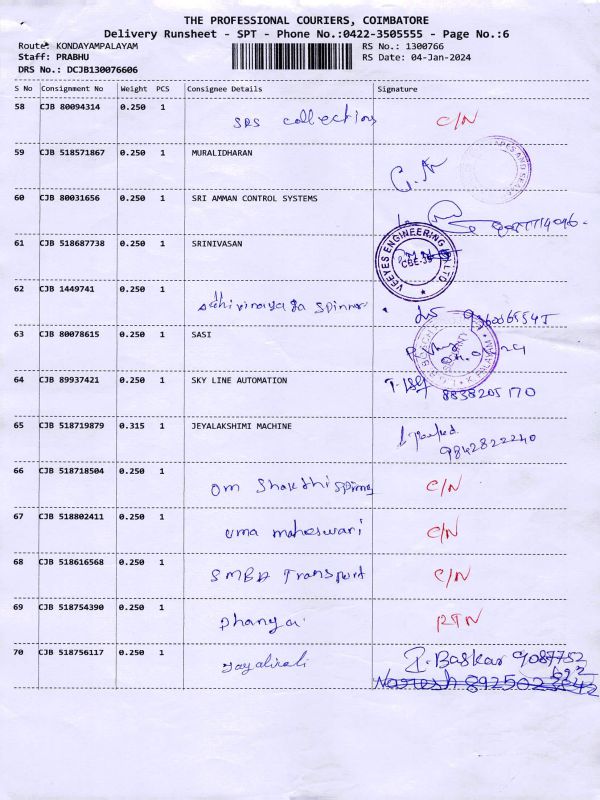 THE PROFESSIONAL COURIERS, COIMBATORE
Delivery Runsheet - SPT - Phone No.:0422-3505555 - Page No.:6
Route: KONDAYAMPALAYAM
RS No.: 1300766
Staff: PRABHU
RS Date: 04-Jan-2024
DRS No.: DCJB130076606
S No Consignment No Weight PCS Consignee Details Signature
58 CJB 80094314 0.250 1 SRS collections C/N
59 CJB 518571867 0.250 1 MURALIDHARAN
60 CJB 80031656 0.250 1 SRI AMMAN CONTROL SYSTEMS
61 CJB 518687738 0.250 1 SRINIVASAN VEEYES ENGINEERING
62 CJB 1449741 0.250 1
63 CJB 80078615 0.250 1 SASI
64 CJB 89937421 0.250 1 SKY LINE AUTOMATION 8838205170
65 CJB 518719879 0.315 1 JEYALAKSHIMI MACHINE 9842822240
66 CJB 518718504 0.250 1 om Shakthi spinng C/N
67 CJB 518802411 0.250 1 uma maheswari C/N
68 CJB 518616568 0.250 1 Transport C/N
69 CJB 518754390 0.250 1 RTN
70 CJB 518756117 0.250 1 Baskar 9087752
Naresh